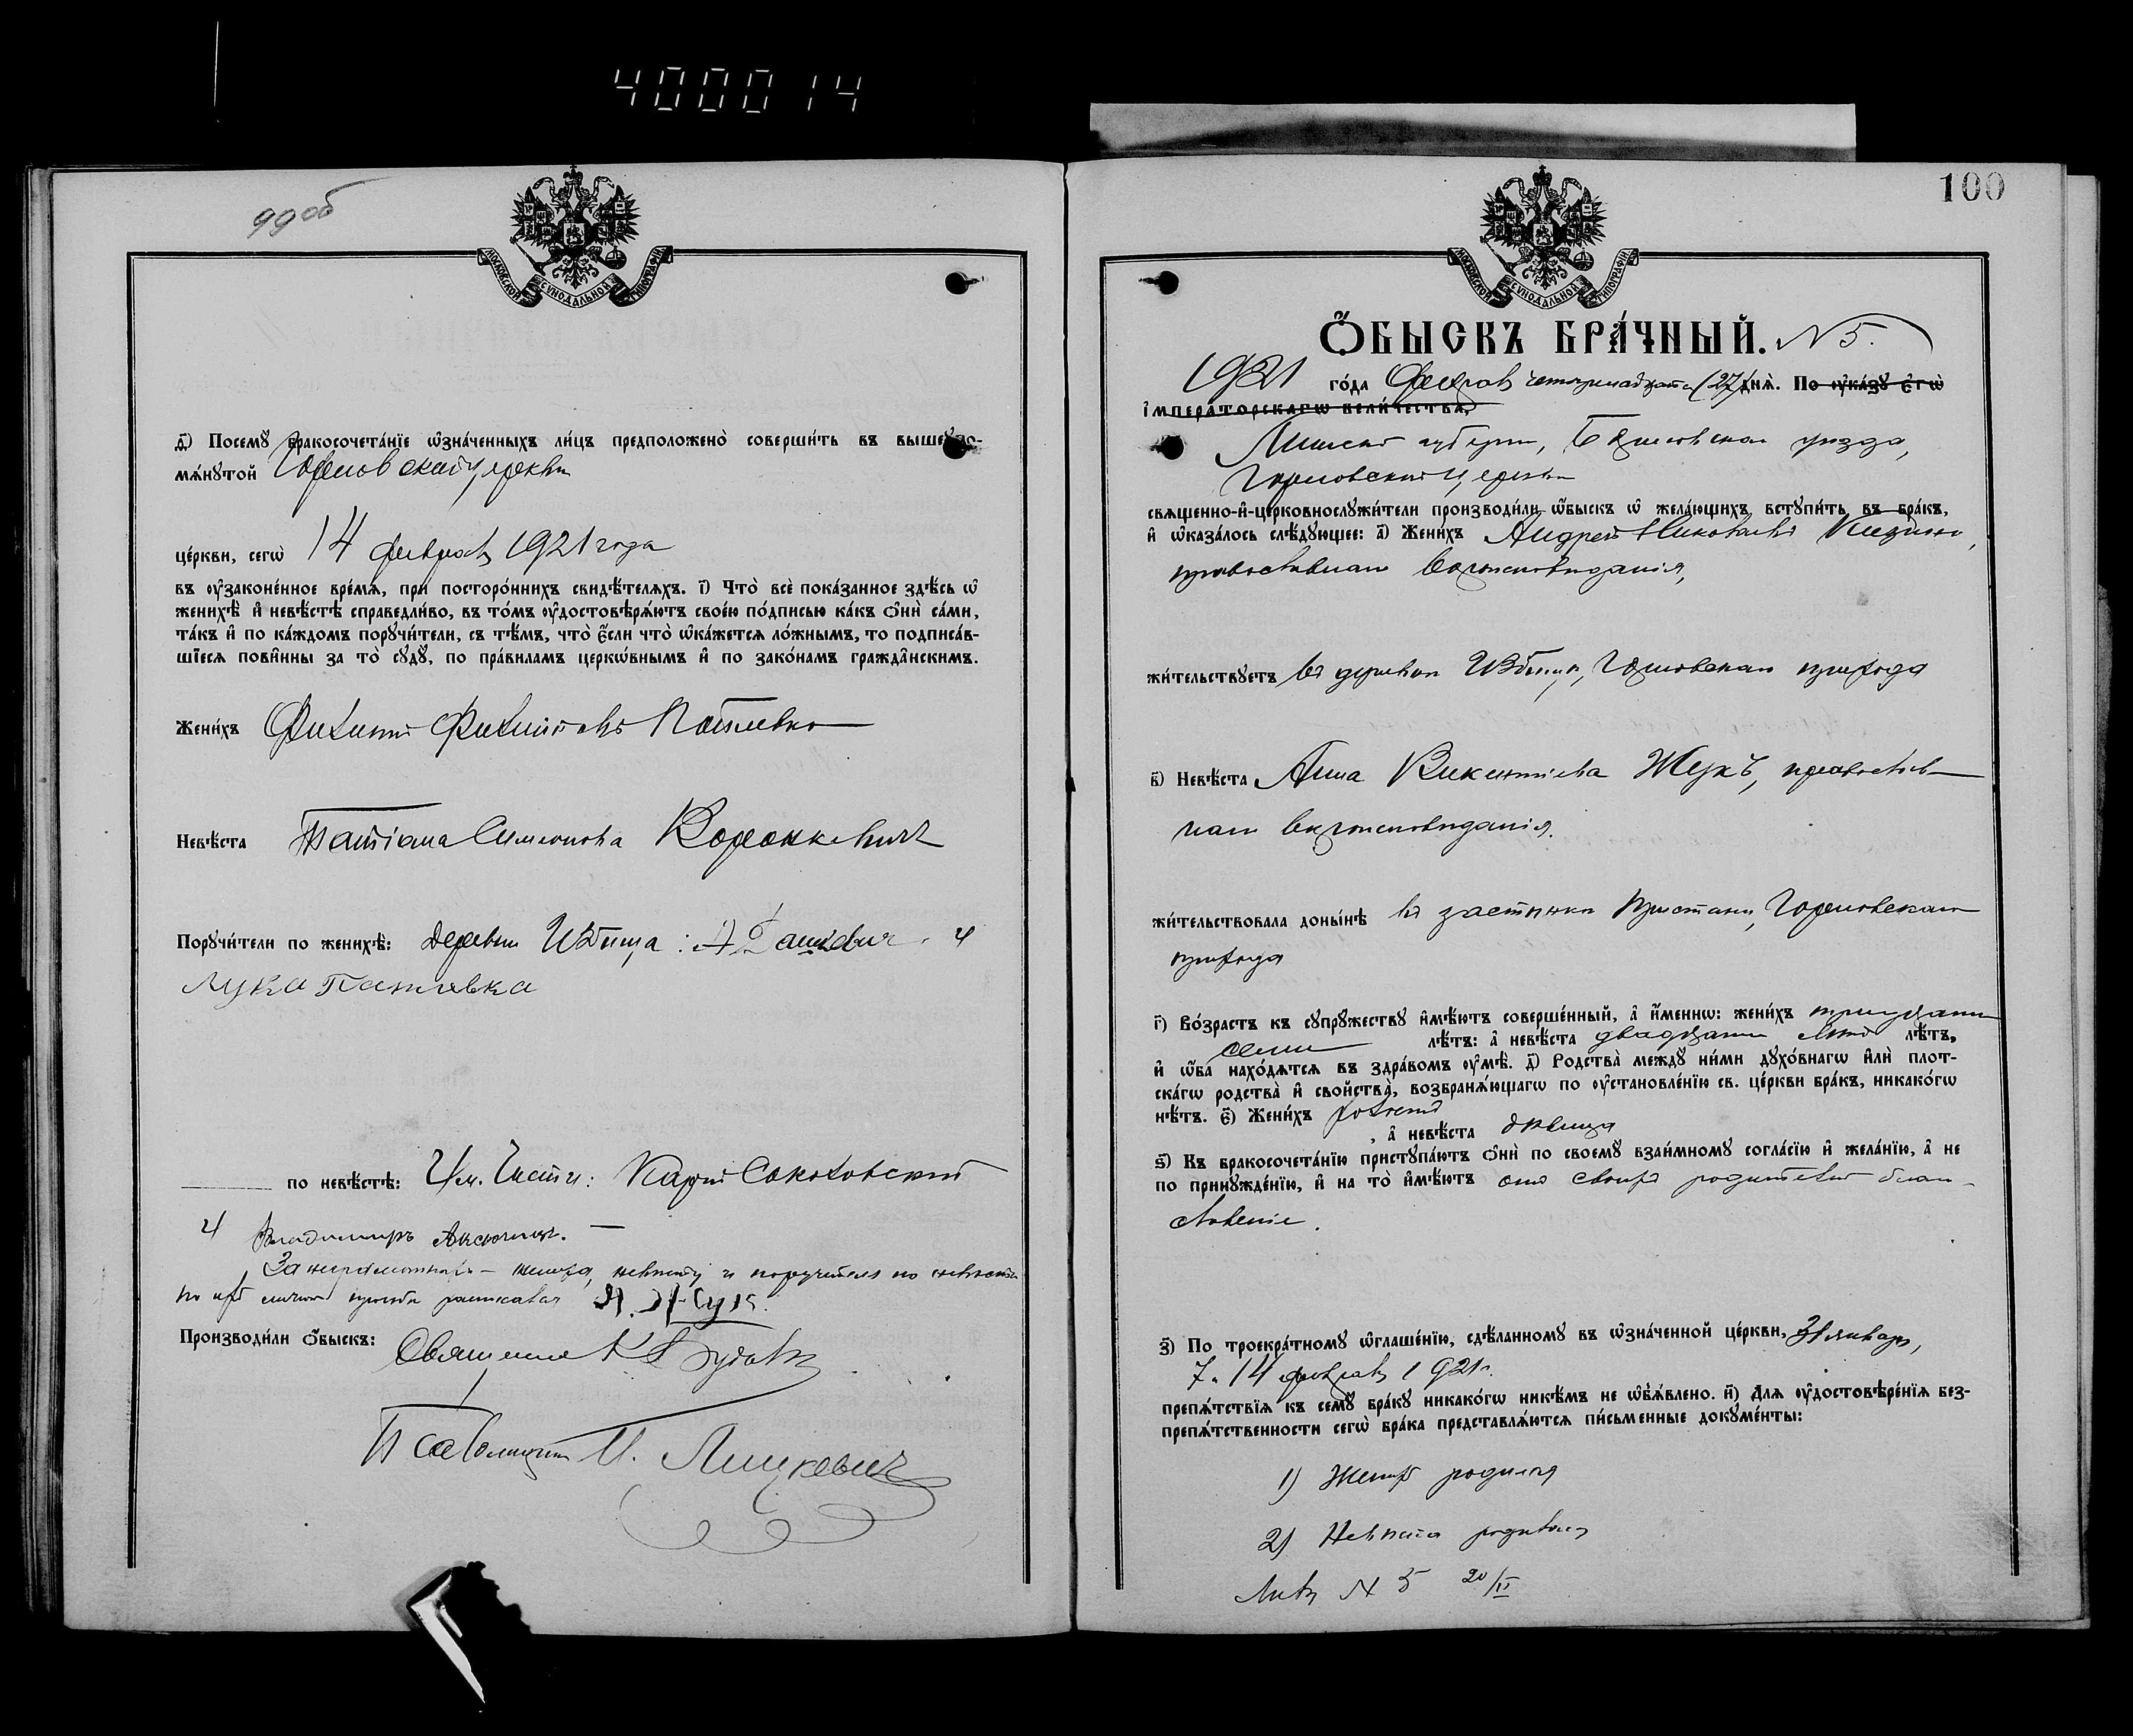 4000014
99об
МОСКОВСКОЙ СѴНОДАЛЬНОЙ ТИПОГРАФІИ
д҃) Посемꙋ бракосочета́нїе ѡ҆зна́ченныхъ ли́цъ предположено̀ соверши́ть въ вышеупо-
мѧ́нꙋтой церкви
це́ркви, сегѡ̀ 14 февраля 1921 года
въ ᲂу҆законе́нное вре́мѧ, при посторо́ннихъ свидѣ́телѧхъ. і҃) Что̀ всѐ пока́занное здѣ́сь ѡ҆
женихѣ̀ и҆ невѣ́стѣ справедли́во, въ то́мъ ᲂу҆достовѣрѧ́ютъ свое́ю по́дписью ка́къ ѻ҆нѝ са́ми,
та́къ и҆ по ка́ждомъ порꙋчи́тели, съ тѣ́мъ, что̀ є҆́сли что̀ ѡ҆ка́жетсѧ ло́жнымъ, то подписа́в-
шїесѧ пови́нны за то̀ сꙋдꙋ̀, по пра́виламъ церкѡ́внымъ и҆ по зако́намъ гражда̂нскимъ.
Жени́хъ Филиппъ Филипповъ
Невѣ́ста Татіана Симеонова Воронкевичъ
Порꙋчи́тели по женихѣ̀: деревни Избища: А Дашкевич и
Лука
по невѣ́стѣ: Им. Соколовскій
и Владимиръ
За неграмотныхъ – жениха, невѣсту и поручителя по невѣстѣ
по ихъ личной просьбѣ расписался
Производи́ли ѻ҆́быскъ: Священникъ
Псаломщикъ И. Лицкевичъ
100
МОСКОВСКОЙ СѴНОДАЛЬНОЙ ТИПОГРАФІИ
Ѻ҆́БЫСКЪ БРА́ЧНЫЙ. N 5.
1921 го́да Февраля четырнадцатаго (27) днѧ̀. По ᲂу҆ка́зꙋ є҆гѡ̀
і҆мпера́торскагѡ вели́чества,
Минской губерніи, Борисовскаго уѣзда,
церкви
свѧщенно-и҆-церковнослꙋжи́тели производи́ли ѡ҆́быскъ ѡ҆ жела́ющихъ встꙋпи́ть въ бра́къ,
и҆ ѡ҆каза́лось слѣ́дꙋющее: а҃) Жени́хъ Андрей Николаевъ
православнаго вѣроисповѣданія,
жи́тельствꙋетъ въ деревнѣ Избищѣ, прихода
в҃) Невѣ́ста Анна Викентіева Жукъ, православ-
наго вѣроисповѣданія.
жи́тельствовала доны́нѣ въ застѣнкѣ Пристань,
прихода
г҃) Во́зрастъ къ сꙋпрꙋ́жествꙋ и҆мѣ́ютъ соверше́нный, а҆ и҆́меннѡ: жени́хъ тридцати
семи лѣ́тъ: а҆ невѣ́ста двадцати лѣ́тъ,
и҆ ѻ҆́ба нахо́дѧтсѧ въ здра́вомъ ᲂу҆мѣ̀. д҃) Родства̀ междꙋ̀ ни́ми дꙋхо́внагѡ и҆лѝ плот-
ска́гѡ родства̀ и҆ сво́йства̀, возбранѧ́ющагѡ по ᲂу҆становле́нїю св. це́ркви бра́къ, никако́гѡ
нѣ́тъ. є҃) Жени́хъ холостъ
, а҆ невѣ́ста дѣвица
ѕ҃) Къ бракосочета́нїю пристꙋпа́ютъ ѻ҆нѝ по своемꙋ̀ взаи́мномꙋ согла́сїю и҆ жела́нїю, а҆ не
по принꙋжде́нїю, и҆ на то̀ и҆мѣ́ютъ отъ своихъ родителей благо-
словеніе.
з҃) По троекра́тномꙋ ѡ҆глаше́нїю, сдѣ́ланномꙋ въ ѡ҆зна́ченной це́ркви, 31 января,
7 и 14 февраля 1921 г.
препѧ́тствїѧ къ семꙋ̀ бра́кꙋ никако́гѡ никѣ́мъ не ѡ҆б̾ѧ́влено. и҃) Длѧ ᲂу҆достовѣре́нїѧ без-
препѧ́тственности сегѡ̀ бра́ка представлѧ́ютсѧ пи́сьменные докꙋме́нты:
1) Женихъ родился
2) Невѣста родилась
N 5 20/II